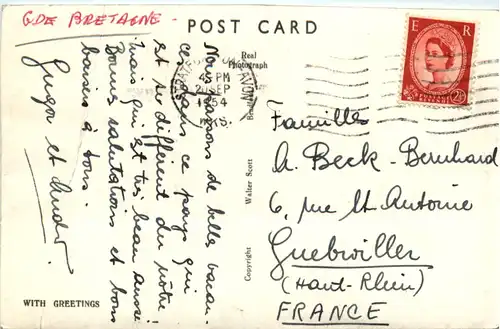 GDE BRETAGNE -
POST CARD
Nous passons de belles vacan-
ces dans ce pays qui
est si différent du nôtre
mais qui est très beau aussi
Bonnes salutations et bons
baisers à tous.
et
WITH GREETINGS
Real
Photograph
Walter Scott
Copyright
4 PM
20 SEP
1954
E R
POSTAGE
REVENUE
2½
Familles
A. Beck-Bernhard
6, rue St Antoine
Guebwiller
(Haut-Rhin)
FRANCE